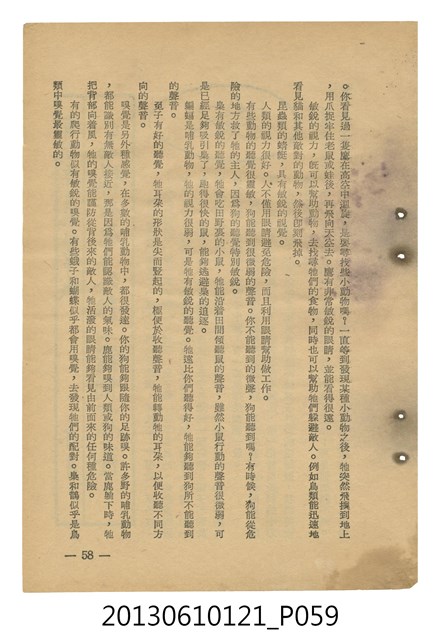 。你看見過一隻鷹在高空中迴旋,是要尋找些小動物嗎?一直等到發現某種小動物之後,牠突然飛撲到地上
,用爪捉牢住老鼠或蛙後,再飛向天空去。鷹有非常敏銳的眼睛,並能看得很遠。
敏銳的視力,既可以幫助動物,去找尋牠們的食物,同時也可以幫助牠們躲避敵人。例如鳥類能迅速地
看見貓和其他敵對的動物,然後卽刻飛掉。
昆蟲類的蜻蜓,具有敏銳的視覺。
人類的視力很好。人不僅用眼睛避免危險,而且利用眼睛幫助做工作。
有些動物的聽覺很靈敏,狗能聽到很微弱的聲音。你不能聽到的微聲,狗能聽到嗎?有時候,狗能從危
險的地方救了牠的主人,因爲狗的聽覺特別敏銳。
梟有敏銳的聽覺,牠會吃田野裏的小鼠,牠能沿着田間傾聽鼠的聲音,雖然小鼠行動的聲音很微弱,可
是已經足夠吸引梟了,跑得很快的鼠,能夠逃避梟的追逐。
蝙蝠是哺乳動物,牠的視力很弱,可是牠有敏銳的聽覺。牠遠比你們聽得好,牠能夠聽到狗所不能聽到
的聲音。
兎子有好的聽覺,牠耳朶的形狀是尖而豎起的,極便於收聽聲音,牠能轉動牠的耳朶,以便收聽不同方
向的聲音。
嗅覺是另外種感覺,在多數的哺乳動物中,都很發達。你的狗能夠跟隨你的足跡嗅。許多野的哺乳動物
,都能識別有無敵人接近,那是因爲牠們能認識敵人的氣味。鹿能夠嗅到人類或狗的味道。當鹿躺下時,牠
把背部向着風,牠的嗅覺能謹防從背後來的敵人,牠活潑的眼睛能夠看見由前面來的任何種危險。
有的爬行動物似有敏銳的嗅覺。有些蛾子和蝴蝶似乎都會用嗅覺,去發現牠們的配對。梟和鶴似乎是鳥
類中嗅覺最靈敏的。
— 58 —
20130610121_P059